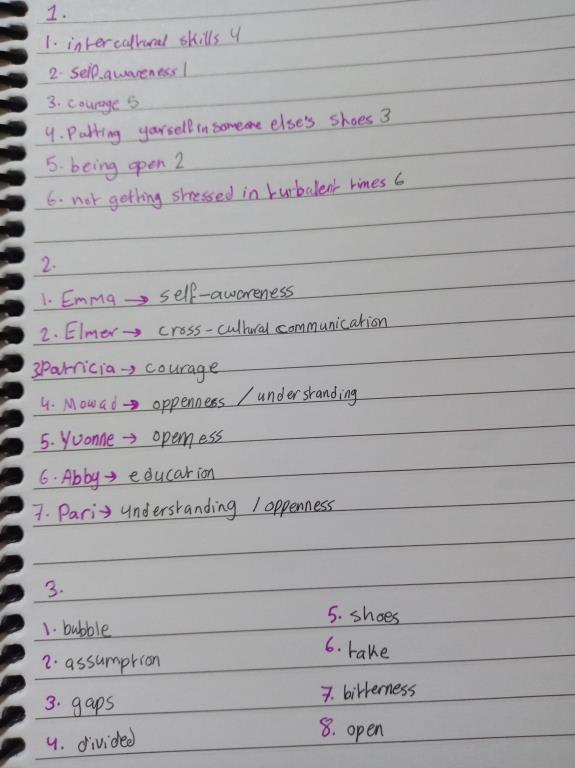 1.
1. intercultural skills 4
2. self-awareness 1
3. courage 5
4. Putting yourself in someone else's shoes 3
5. being open 2
6. not getting stressed in turbulent times 6
2.
1. Emma → self-awareness
2. Elmer → cross-cultural communication
3 Patricia → courage
4. Mowad → oppenness / understanding
5. Yvonne → openness
6. Abby → education
7. Pari → understanding / oppenness
3.
1. bubble
2. assumption
3. gaps
4. divided
5. shoes
6. take
7. bitterness
8. open